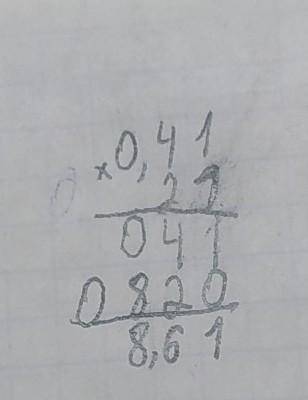 0,41
× 21
041
0820
8,61